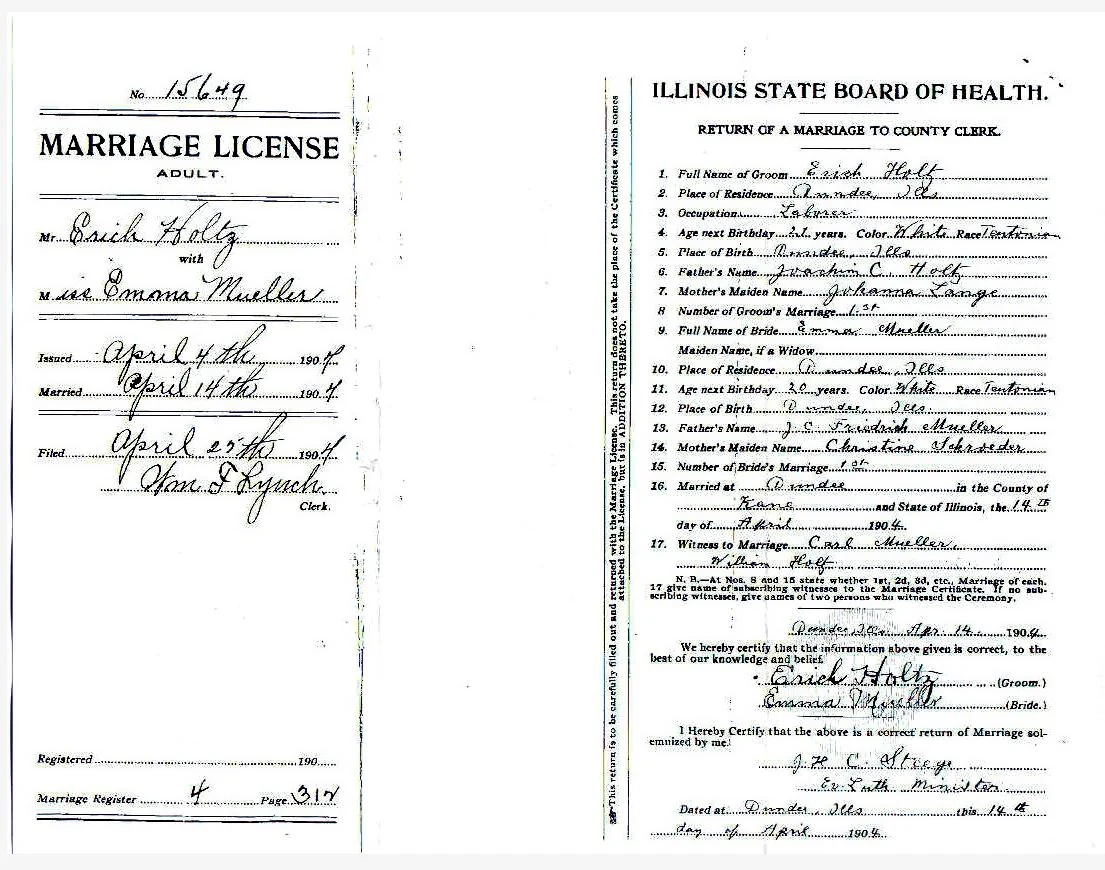 No. 15649
MARRIAGE LICENSE
ADULT.
Mr. Erich Holtz
with
Miss Emma Mueller
Issued April 4th 1904
Married April 14th 1904
Filed April 25th 1904
Wm F Lynch
Clerk.
Registered 190
Marriage Register 4 Page 312
This return is to be carefully filled out and returned with the Marriage License. This return does not take the place of the Certificate which comes
attached to the License, but is in ADDITION THERETO.
ILLINOIS STATE BOARD OF HEALTH.
RETURN OF A MARRIAGE TO COUNTY CLERK.
1. Full Name of Groom Erich Holtz
2. Place of Residence Dundee, Ills
3. Occupation Laborer
4. Age next Birthday years. Color White Race Teutonian
5. Place of Birth Dundee, Ills
6. Father's Name Joachim C. Holtz
7. Mother's Maiden Name Johanna Lange
8 Number of Groom's Marriage 1st
9. Full Name of Bride Emma Mueller
Maiden Name, if a Widow
10. Place of Residence Dundee, Ills
11. Age next Birthday 20 years. Color White Race Teutonian
12. Place of Birth Dundee, Ills.
13. Father's Name J. C. Friedrich Mueller
14. Mother's Maiden Name Christine Schroeder
15. Number of Bride's Marriage 1st
16. Married at Dundee in the County of
Kane and State of Illinois, the 14th
day of April 1904
17. Witness to Marriage Carl Mueller,
William Holtz
N. B.—At Nos. 8 and 15 state whether 1st, 2d, 3d, etc., Marriage of each.
17 give name of subscribing witnesses to the Marriage Certificate. If no sub-
scribing witnesses, give names of two persons who witnessed the Ceremony.
Dundee, Ills Apr. 14 1904
We hereby certify that the information above given is correct, to the
best of our knowledge and belief.
Erich Holtz (Groom.)
Emma Mueller (Bride.)
I Hereby Certify that the above is a correct return of Marriage sol-
emnized by me.
J. H. C. Steege
Ev. Luth. Minister
Dated at Dundee, Ills this 14th
day of April 1904